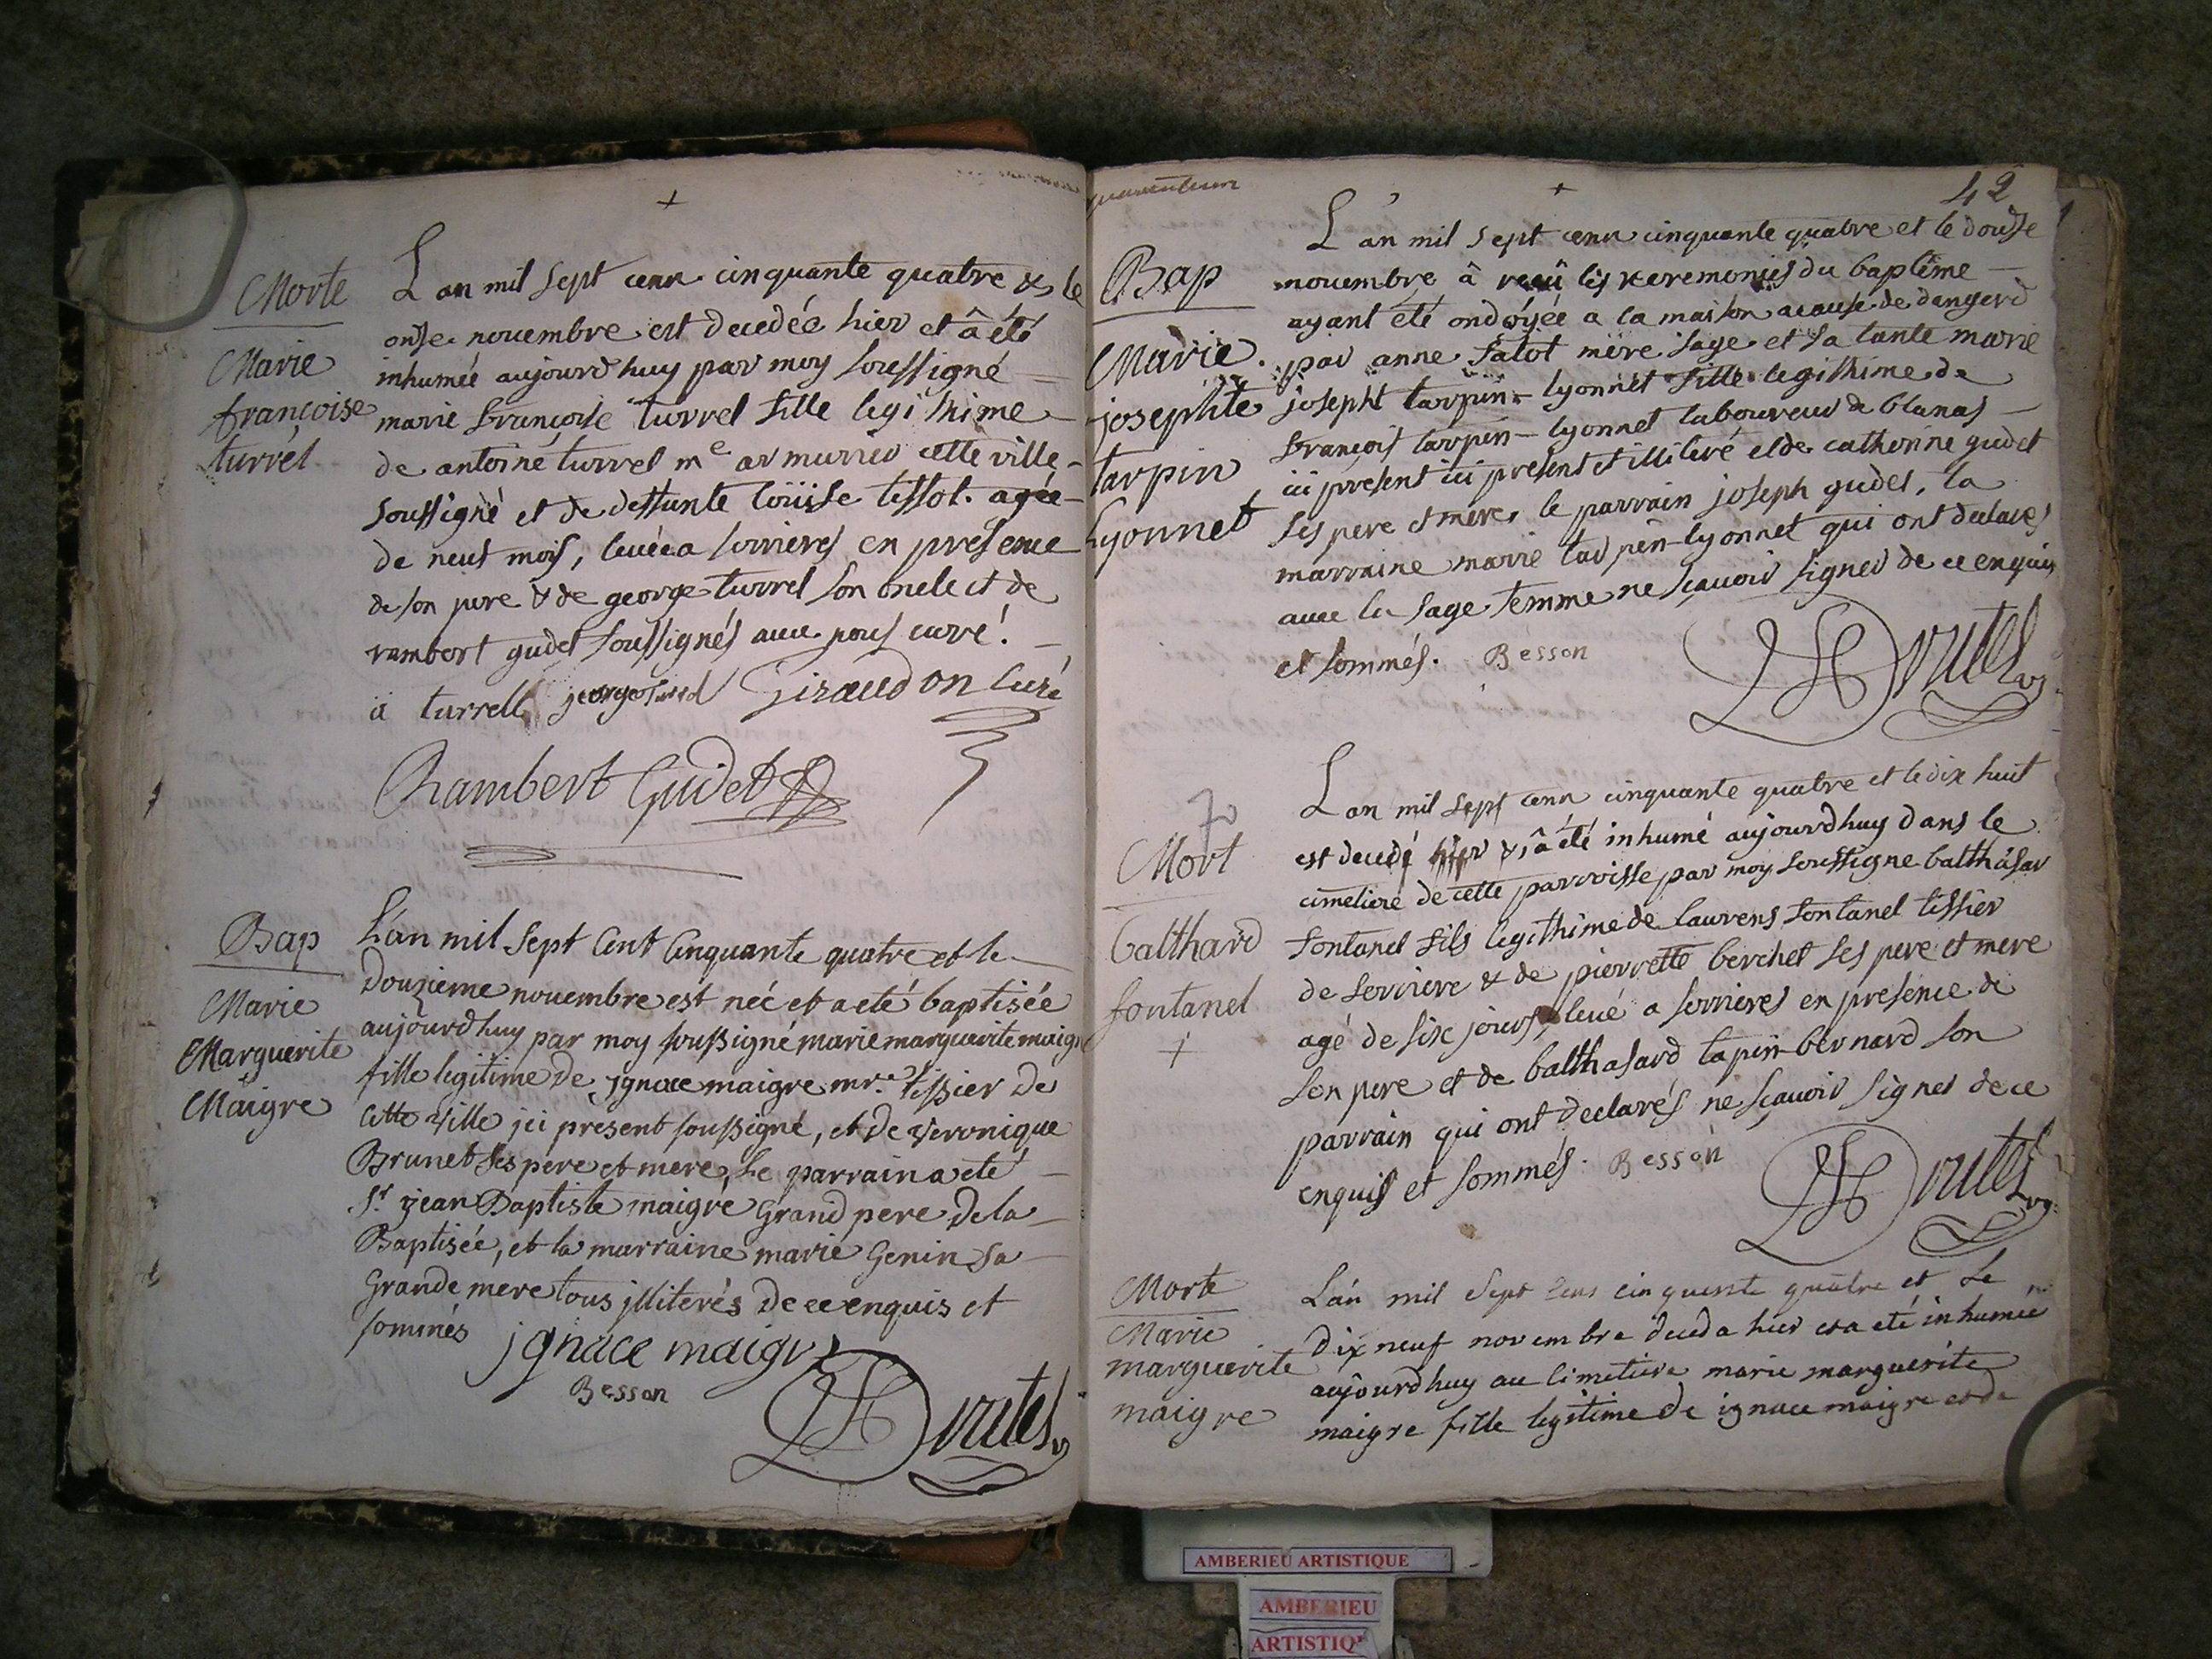 Morte
Marie
françoise
turrel
L an mil sept cenn cinquante quatre & le
onse novembre est decedée hier et â été
inhumée aujourd huy par moy soussigné
marie françoise turrel fille legithime
de antoine turrel me armurier cette ville
soussigné et de deffunte loüise tissot. agée
de neuf mois, levée a sorrieres en presence
de son pere & de george turrel son oncle et de
rambert gudet soussignés avec nous curé.
a turrell georgeturrel Giraudon curé
Rambert Gudet
Bap
Marie
Marguerite
Maigre
L'an mil sept Cent Cinquante quatre et le
douzieme novembre est née et a eté baptisée
aujourdhuy par moy soussigné marie marguerite maigre
fille legitime de ignace maigre mre. tissier de
cette ville ici present soussigné, et de veronique
Brunet ses pere et mere, Le parrain a eté
Sr. jean Baptiste maigre Grand pere de la
Baptisée, et la marraine marie Genin Sa
Grande mere tous illiterés de ce enquis et
sommés ignace maigre
Besson
Drutel v
42
Bap
Marie
josephte
tarpin
Lyonnet
L'an mil sept cenn cinquante quatre et le douse
novembre â reçû les keremonies du baptême
ayant eté ondoyée a la maison acause de dangerd
par anne falot mère sage et sa tante marie
josepht tarpin- lyonnet fille legithime de
françois tarpin- lyonnet laboureur de blanas
ici présent ici present et illiteré et de catherine gudet
ses pere et mere, le parrain joseph gudet, la
marraine marie tarpin-lyonnet qui ont declarés
avec la sage femme ne sçavoir signer de ce enquis
et sommés. Besson
Drutel v
Mort
balthard
fontanel
+
L an mil sept cenn cinquante quatre et le dix huit
est decedé hier & â été inhumé aujourdhuy dans le
cimetiere de cette parroisse par moy soussigne balthâsar
fontanel fils legithime de laurens fontanel tissier
de sorriere & de pierrette berchet ses pere et mere
agé de six jours, levé a sorrieres en presence de
son pere et de balthasard tapin-bernard son
parrain qui ont declarés ne sçavoir signer de ce
enquis et sommés. Besson
Drutel v
Morte
Marie
marguerite
maigre
L'an mil sept cens cinquente quatre et le
dix neuf novembre deceda hier et a eté inhumée
aujourdhuy au cimetiere marie marguerite
maigre fille legitime de ignace maigre et de
AMBERIEU ARTISTIQUE
AMBERIEU
ARTISTIQ